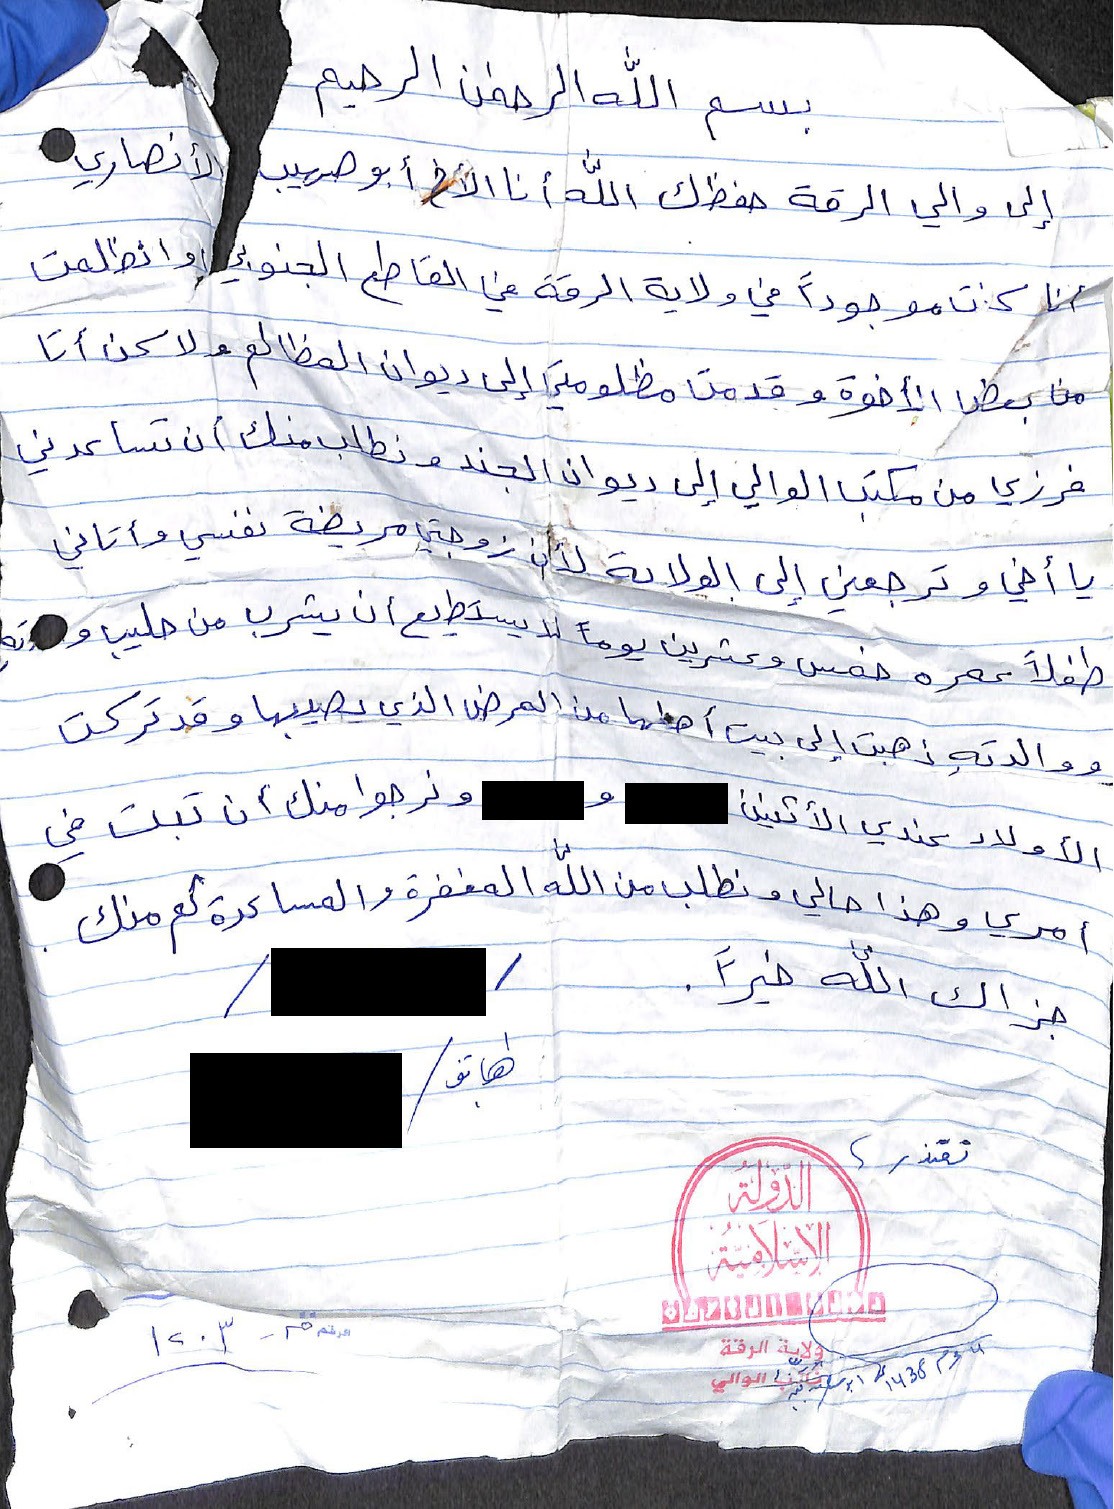 بسم اللّه الرحمٰن الرحيم
إلى والي الرقة حفظك اللّه أنا الأخ أبو صهيب الأنصاري
أنا كنت موجوداً في ولاية الرقة في القاطع الجنوبي وانظلمت
من بعض الأخوة و قدمت مظلوميتي إلى ديوان المظالم ولاكن أتا
فرزي من مكتب الوالي إلى ديوان الجند و نطلب منك أن تساعدني
يا أخي و ترجعني إلى الولاية لأن زوجتي مريظة نفسي وأتاني
طفلاً عمره خمس وعشرين يوماً لا يستطيع أن يشرب من حليب و
ووالدتهِ ذهبت إلى بيت أهلها من المرض الذي يصيبها و قد تركت
الأولاد عندي الأثنين و و نرجوا منك أن تبت في
أمري و هذا حالي و نطلب من اللّه المغفرة والمساعدة ثم منك .
جزاك اللّه خيراً .
/ /
هاتف /
الدولة
الإسلامية
ولاية الرقة
مكتب الوالي
1436
الرقم
١٢٠٣